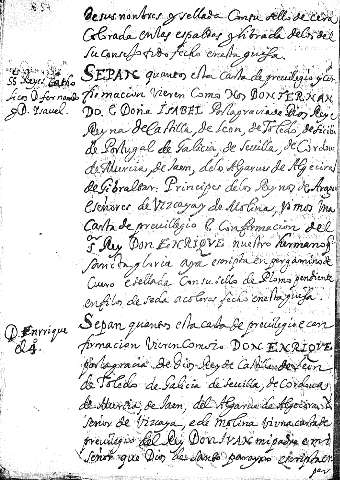 de sus nombres y sellada con su sello de cera
colorada en las espaldas y librada de los del
su Consejo fecho en esta guisa
SS. Reyes Catho
licos D. fernando
y D. Isavel.
SEPAN quantos esta carta de previllegio y con
firmacion vieren Como Nos DON FERNAN
DO. E Doña ISABEL Por la gracia de Dios Rey e
Reyna de Castilla, de Leon, de Toledo, de Sicilia
de Portugal de Galicia, de Sevilla, de Cordova
de Murcia, de Jaen, de los Algarves de Algecira
de Gibraltar: Principes de los Reynos de Arago
e señores de Vizcaya, y de Molina, vimos una
Carta de previllegio E Confirmacion del
Sr. Rey DON ENRIQUE nuestro hermano q
sancta gloria aya escripta en pergamino de
Cuero e sellada Con su sello de Plomo pendiente
en filos de seda a colores fecho en esta guisa
D. Enrrique
el 4.
Sepan quantos esta carta de previllegio e con
firmacion Vieren Como Yo DON ENRIQUE
por la gracia de Dios Rey de Castilla de Leon
de Toledo de Galicia de Sevilla, de Cordova
de Murcia, de Jaen, del Algarve de Algecira
señor de Vizcaya, e de Molina vi una carta de
previllegio del Rey DON JUAN mi padre e mi
señor que Dios de Sancto parayso escripta en
per